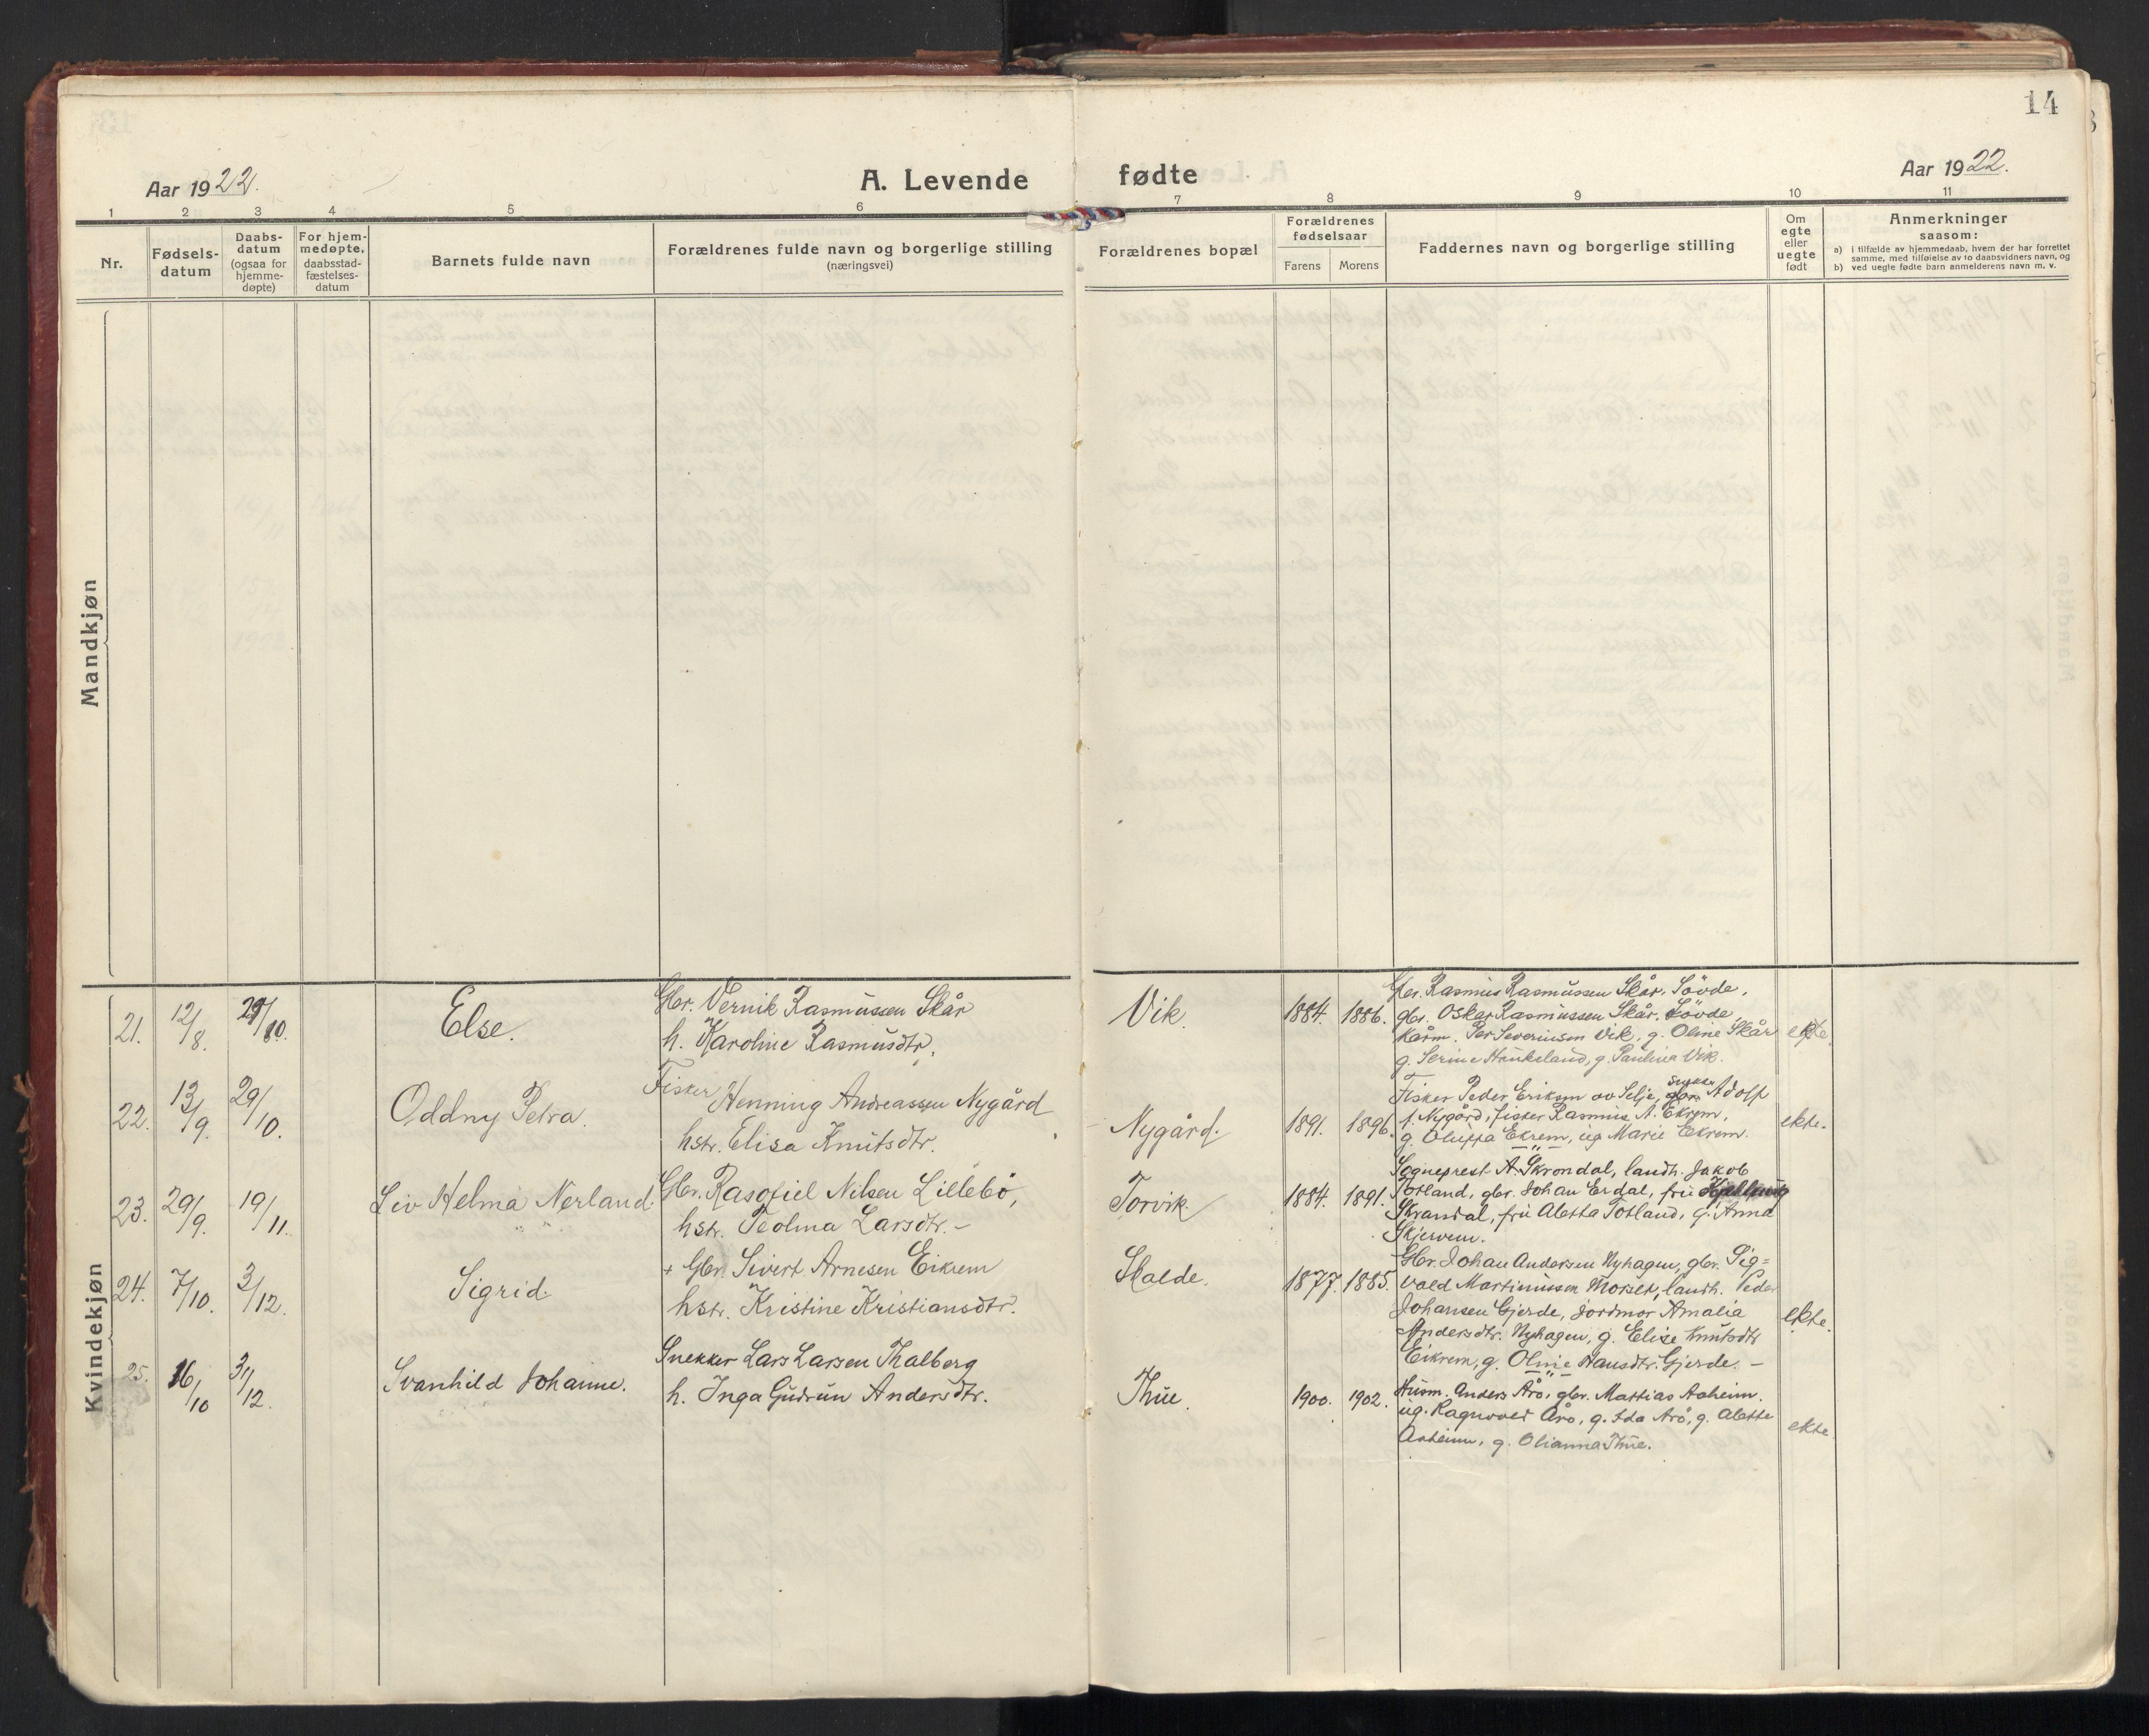 14
Aar 1922.
A. Levende fødte
Aar 1922.
1 2 3 4 5 6 7 8 9 10 11
Nr.
Fødsels-
datum
Daabs-
datum
(ogsaa for
hjemme-
døpte)
For hjem-
medøpte,
daabsstad-
fæstelses-
datum
Barnets fulde navn
Forældrenes fulde navn og borgerlige stilling
(næringsvei)
Forældrenes bopæl
Forældrenes
fødselsaar
Farens Morens
Faddernes navn og borgerlige stilling
Om
egte
eller
uegte
født
Anmerkninger
saasom:
a) i tilfælde av hjemmedaab, hvem der har forrettet
samme, med tilføielse av to daabsvidners navn, og
b) ved uegte fødte barn anmelderens navn m. v.
Mandkjøn
Kvindekjøn
21. 12/8. 29/10. Else.
Gbr. Vernik Rasmussen Skår
h. Karoline Rasmusdtr.
Vik. 1884. 1886.
Gbr. Rasmus Rasmussen Skår, Sövde,
gbr. Oskar Rasmussen Skår, Sövde,
Per Severinsen Vik, g. Oline Skår
g. Serine Haukeland, g. Paulina Vik.
ekte.
22. 13/9. 29/10. Oddny Petra.
Fisker Henning Andreassen Nygård
hstr. Elisa Knutsdtr.
Nygård. 1891. 1896.
Fisker Peder Eriksen av Selje, Adolf
Nygård, fisker Rasmus A. Ekrem,
g. Ekrem, ug. Marie Ekrem.
ekte.
23. 29/9. 19/11. Liv Helma Nerland
Gbr. Rasofiel Nilsen Lillebö,
hstr. Teolina Larsdtr. -
Torvik 1884. 1891.
Sogneprest A. Skrondal, landh. Jakob
Totland, gbr. Johan Erdal, fru
Skrondal, fru Aletta Totland, g. Anna
Skjerven.
24. 7/10. 3/12. Sigrid.
+ Gbr. Sivert Arnesen Eikrem
hstr. Kristine Kristiansdtr.
Skalde. 1877. 1885.
Gbr. Johan Andersen Nyhagen, gbr. Sig=
vald Martinussen Morset, landh. Peder
Johansen Gjerde, jordmor Amalia
Andersdtr. Nyhagen, g. Elise Knutsdtr
Eikrem, g. Oline Hansdtr. Gjerde. -
ekte.
25. 16/10 31/12. Svanhild Johanne.
Snekker Lars Larsen Thalberg
h. Inga Gudrun Andersdtr.
Thue. 1900. 1902.
Husm. Anders Årö, gbr. Mattias Aaheim.
ug. Ragnvald Årö, g. Ida Årö, g. Alette
Aaheim, g. Olianna Thue.
ekte.